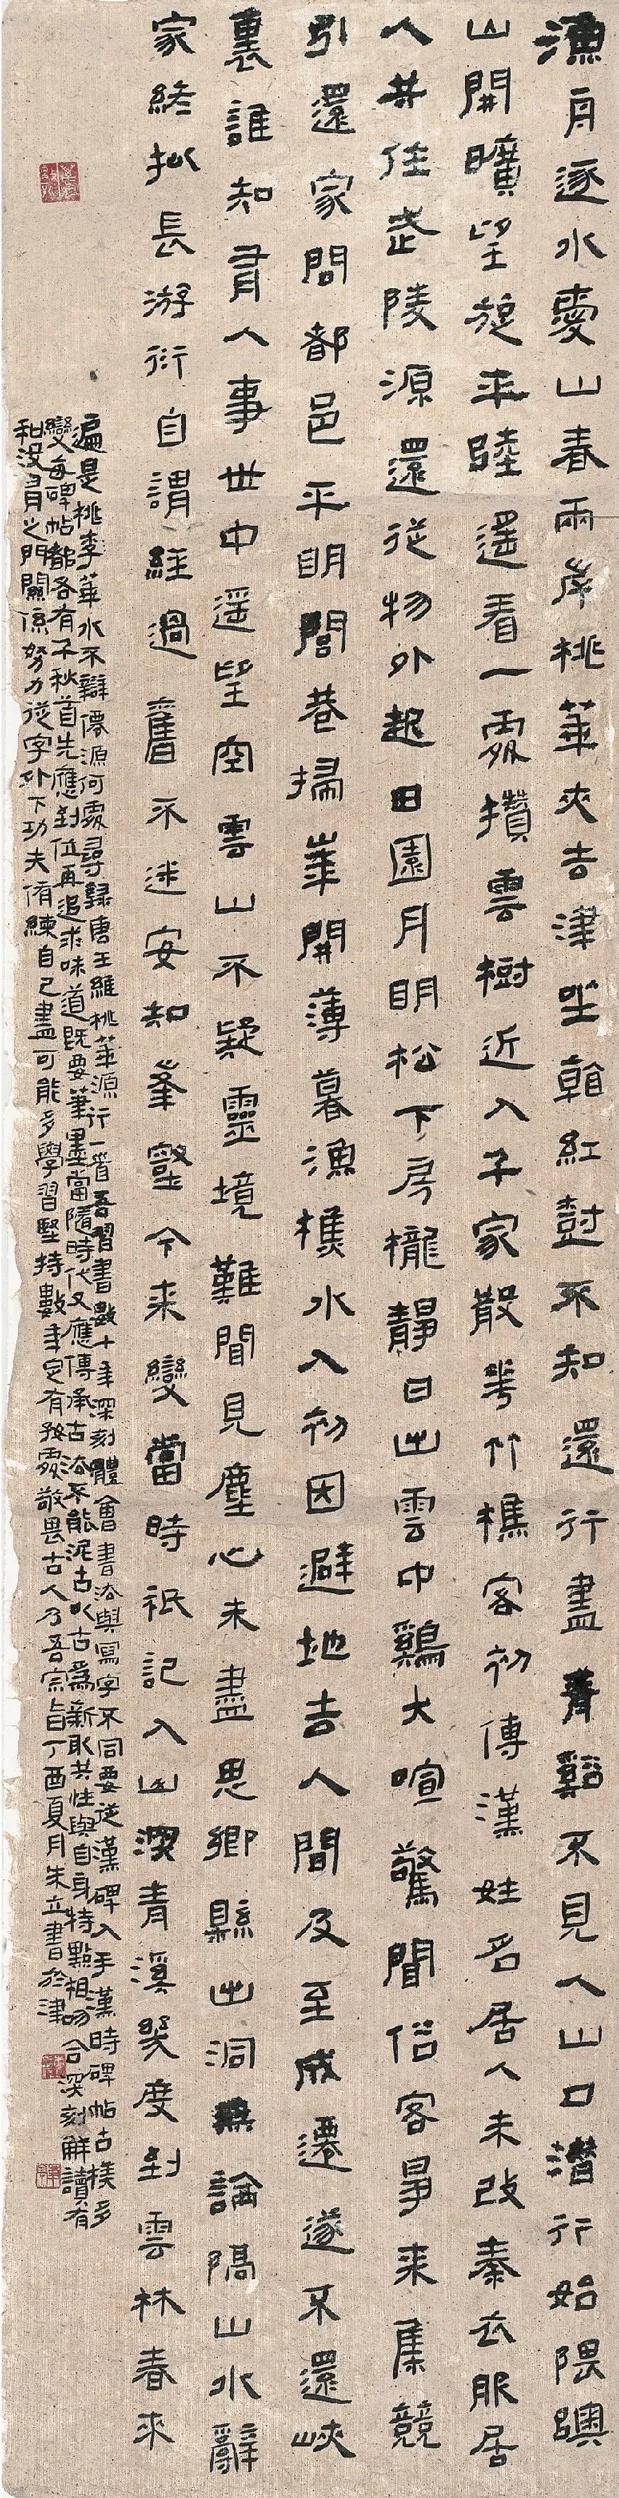 漁舟逐水愛山春兩岸桃華夾去津坐看紅樹不知還行盡青谿不見人山口潛行始隈隩
山開曠望旋平陸遥看一處攢雲樹近入千家散花竹樵客初傳漢姓名居人未改秦衣服居
人共住武陵源還從物外起田園月明松下房櫳靜日出雲中鷄犬喧驚聞俗客爭来集競
引還家問都邑平明閭巷掃華開薄暮漁樵水入初因避地去人間及至成遷遂不還峽
裏誰知有人事世中遥望空雲山不疑靈境難聞見塵心未盡思鄉縣出洞無論隔山水辭
家終拟長游衍自謂經過舊不迷安知峯壑今来變當時衹記入山深青溪幾度到雲林春來
遍是桃李華水不辯僊源何處尋録唐王維桃華源行一首吾習書數十年深刻體會書法與寫字不同要從漢碑入手漢時碑帖古樸多
變每碑帖都各有千秋首先應到位再追求味道既要筆墨當隨時代又應傳承古法不能泥古以古爲新取共性與自身特點相吻合深刻解讀有
和没有之門關係努力從字外下功夫脩練自己盡可能多學習堅持數年定有發處敬畏古人乃吾宗旨丁酉夏月朱立書於津